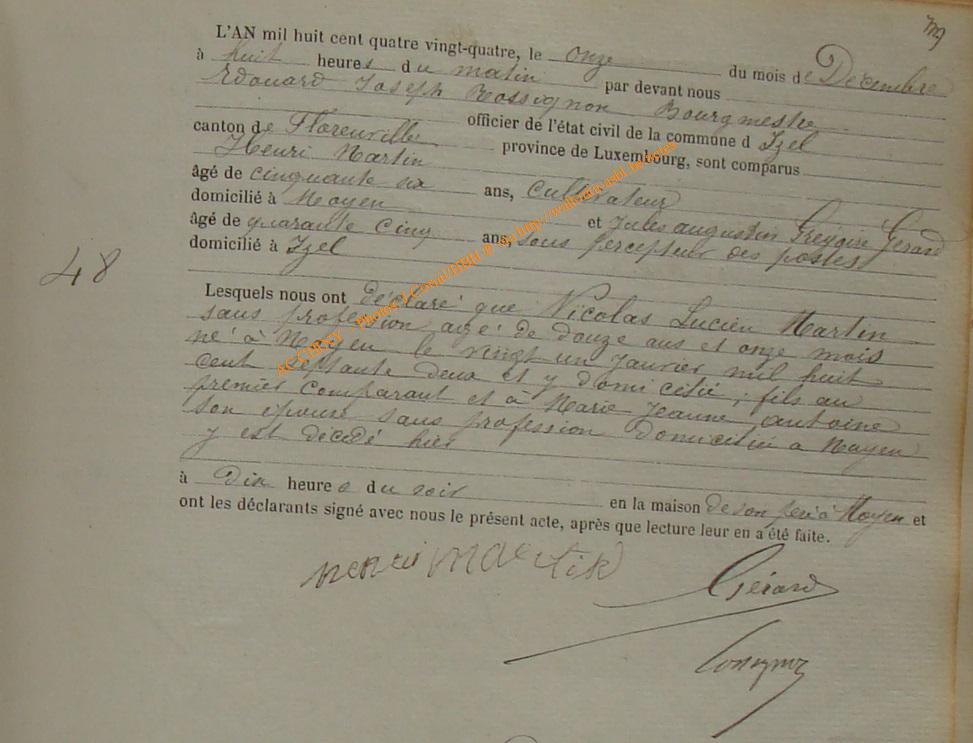 L'AN mil huit cent quatre vingt-quatre, le onze du mois de Décembre
à huit heures du matin par devant nous
Edouard Joseph Rossignon Bourgmestre
officier de l'état civil de la commune d Izel
canton de Florenville province de Luxembourg, sont comparus
Henri Martin
âgé de cinquante six ans, cultivateur
domicilié à Moyen et Jules augustin Grégoire Gérard
âgé de quarante cinq ans, sous percepteur des postes
domicilié à Izel
48
Lesquels nous ont déclaré que Nicolas Lucien Martin
sans profession agé de douze ans et onze mois
né à Moyen le vingt un Janvier mil huit
cent septante deux et y domicilié, fils du
premier comparant et à Marie Jeanne antoine
son épouse sans profession domiciliée à Moyen
y est décédé hier
à dix heures du soir en la maison de son père à Moyen et
ont les déclarants signé avec nous le présent acte, après que lecture leur en a été faite.
henri martin
Gérard